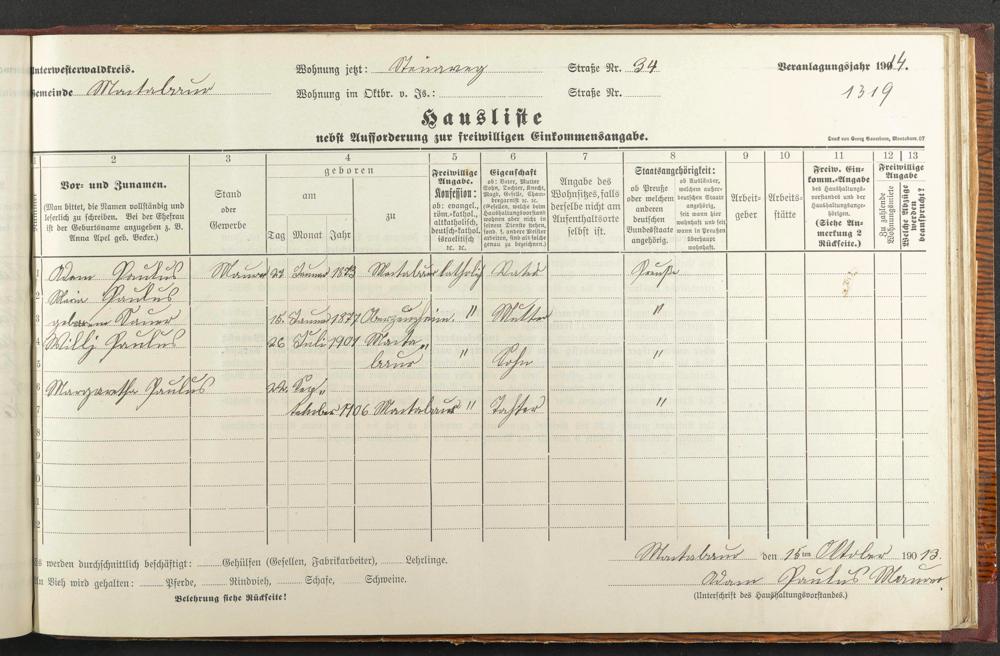 Unterwesterwaldkreis. Wohnung jetzt: Steinweg Straße Nr. 34 Veranlagungsjahr 1914.
Gemeinde Montabaur Wohnung im Oktbr. v. Js.: Straße Nr. 1319
Hausliste
nebst Aufforderung zur freiwilligen Einkommensangabe.
Druck von Georg Sauerborn, Montabaur. 07
1 2 3 4 5 6 7 8 9 10 11 12 13
Nummer
Vor- und Zunamen.
(Man bittet, die Namen vollständig und
leserlich zu schreiben. Bei der Ehefrau
ist der Geburtsname anzugeben z. B.
Anna Apel geb. Becker.)
Stand
oder
Gewerbe
geboren
am
Tag Monat Jahr
zu
Freiwillige
Angabe.
Konfession:
ob: evangel.,
röm.-kathol.,
altkatholisch,
deutsch-kathol.
israelitisch
ꝛc. ꝛc.
Eigenschaft
ob: Vater, Mutter
Sohn, Tochter, Knecht,
Magd, Geselle, Cham-
bregarnist ꝛc. ꝛc.
(Gesellen, welche beim
Haushaltungsvorstand
wohnen oder nicht in
seinem Dienste stehen,
sond. f. andere Meister
arbeiten, sind als solche
genau zu bezeichnen.)
Angabe des
Wohnsitzes, falls
derselbe nicht am
Aufenthaltsorte
selbst ist.
Staatsangehörigkeit:
ob Preuße
oder welchem
anderen
deutschen
Bundesstaate
angehörig.
ob Ausländer,
welchem außer-
deutschen Staate
angehörig.
seit wann hier
wohnhaft und seit
wann in Preußen
überhaupt
wohnhaft.
Arbeit-
geber
Arbeits-
stätte
Freiw. Ein-
komm.-Angabe
des Haushaltungs-
vorstandes und der
Haushaltungsange-
hörigen.
(Siehe An-
merkung 2
Rückseite.)
Freiwillige
Angabe
Zu zahlende
Wohnungsmiete
Welche Abzüge
werden
beansprucht?
1 Adam Paulus Maurer 27 Januar 1873 Montabaur katholisch Vater Preuße
2 Maria Paulus
3 geborene Sauer 15. Januar 1877 Oberzeuzheim. " Mutter "
4 Willy Paulus 26 Juli 1901 Monta-
5 baur " Sohn "
6 Margaretha Paulus 22. Sep-
7 tember 1906 Montabaur " Tochter "
8
9
0
1
2
Es werden durchschnittlich beschäftigt: Gehülfen (Gesellen, Fabrikarbeiter), Lehrlinge.
An Vieh wird gehalten: Pferde, Rindvieh, Schafe, Schweine.
Belehrung siehe Rückseite!
Montabaur den 15ten Oktober 1903 13.
Adam Paulus Maurer
(Unterschrift des Haushaltungsvorstandes.)